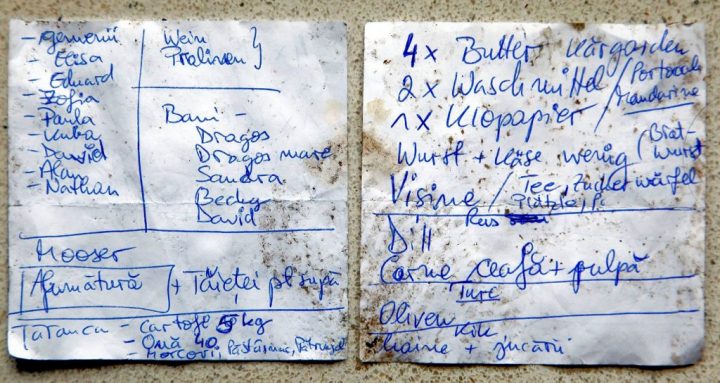 - gemenii
- Elisa
- Eduard
- Zofia
- Paula
- Kuba
- Dawid
- Nathan
Wein
Pralinen }
Bani -
Dragos
Dragos mare
Sandra
Becky
David
Mooser
Afumătură + Tăieței pt supă
Taranca - cartofi 5 kg
- Ouă 40
- Morcovi, Păstârnac, Pătrunjel
4x Butter Kärgarden
2x Waschmittel / Portocale
1x Klopapier / Mandarine
Wurst + Käse wenig (Bratwurst
Visine / Tee, Zucker würfel
Reis
Dill
Carne / ceafă + pulpă
Turc
Oliven
Kik
haine + jucării